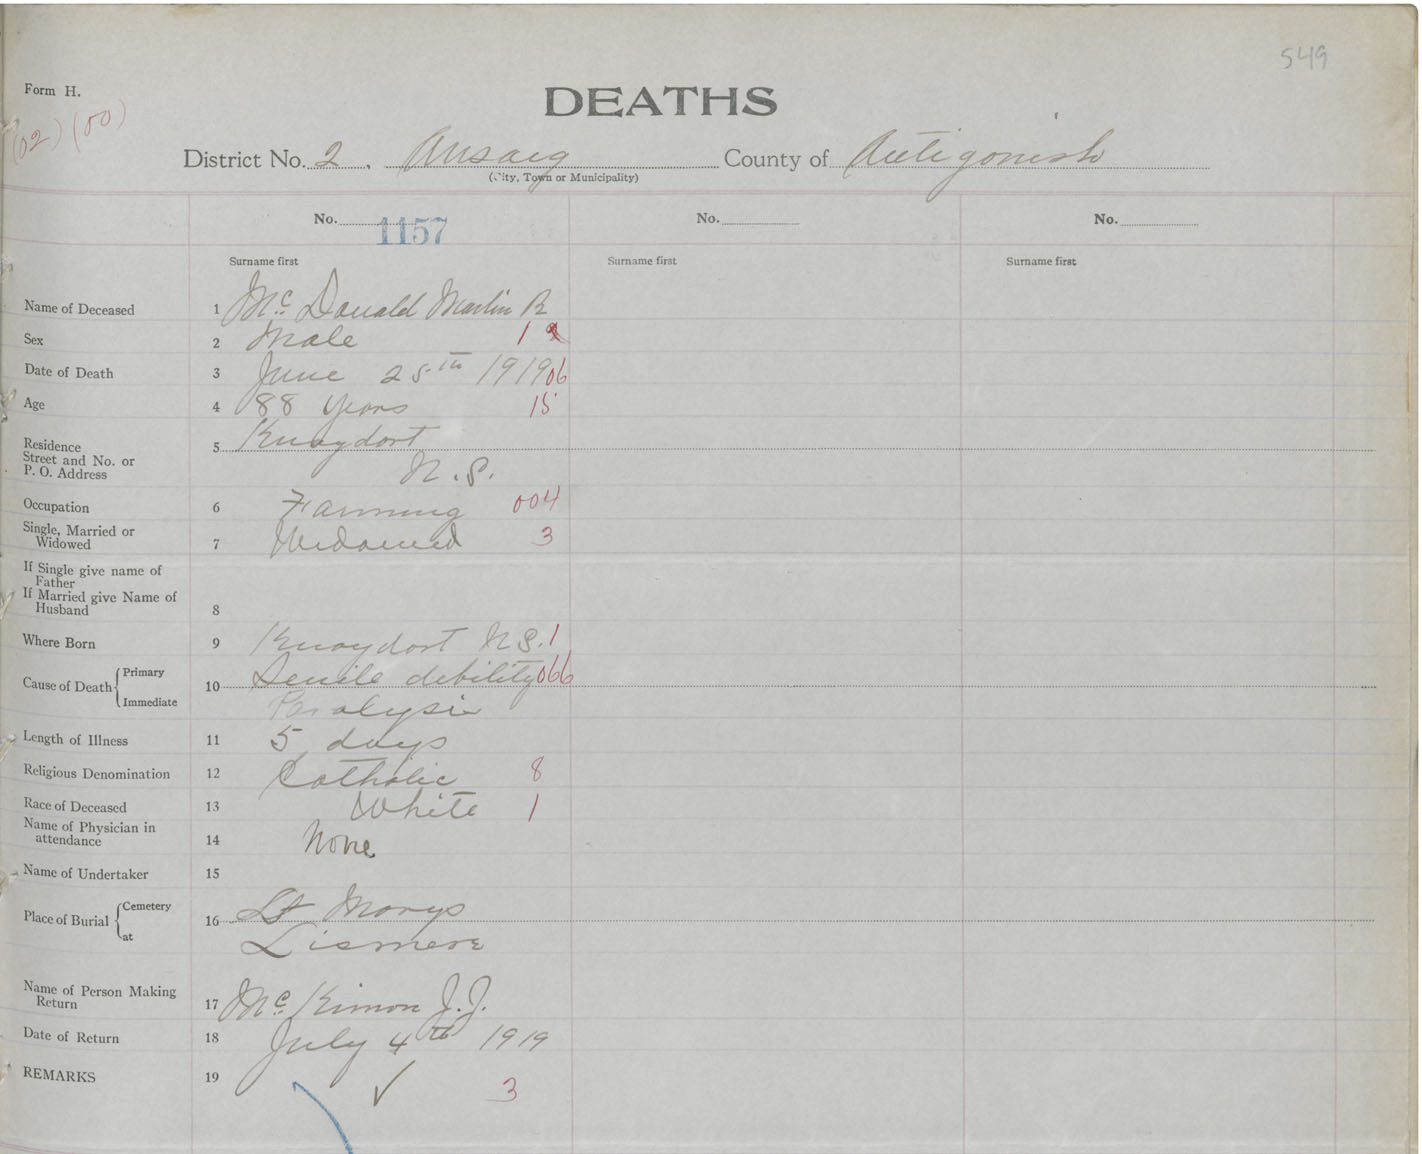 549
Form H.
(02) (00)
DEATHS
District No. 2. Arisaig County of Antigonish
(City, Town or Municipality)
No. 1157 No. No.
Surname first Surname first Surname first
Name of Deceased 1 McDonald Martin R
Sex 2 Male 1
Date of Death 3 June 25th 1919 06
Age 4 88 years 15
Residence
Street and No. or
P. O. Address 5 Knoydort
N.S.
Occupation 6 Farming 004
Single, Married or
Widowed 7 Widowed 3
If Single give name of
Father
If Married give Name of
Husband 8
Where Born 9 Knoydort N S. 1
Cause of Death Primary 10 Senile debility 066
Immediate Paralysis
Length of Illness 11 5 days
Religious Denomination 12 Catholic 8
Race of Deceased 13 White 1
Name of Physician in
attendance 14 None
Name of Undertaker 15
Place of Burial Cemetery 16 St Marys
at Lismere
Name of Person Making
Return 17 McKimon J.J.
Date of Return 18 July 4th 1919
REMARKS 19 ✓ 3